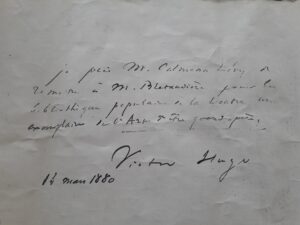 je prie M. Calmann Lévy de
remettre à M. pour la
bibliothèque populaire de la un
exemplaire de l'Art d'être grand-père.
Victor Hugo
14 mars 1880